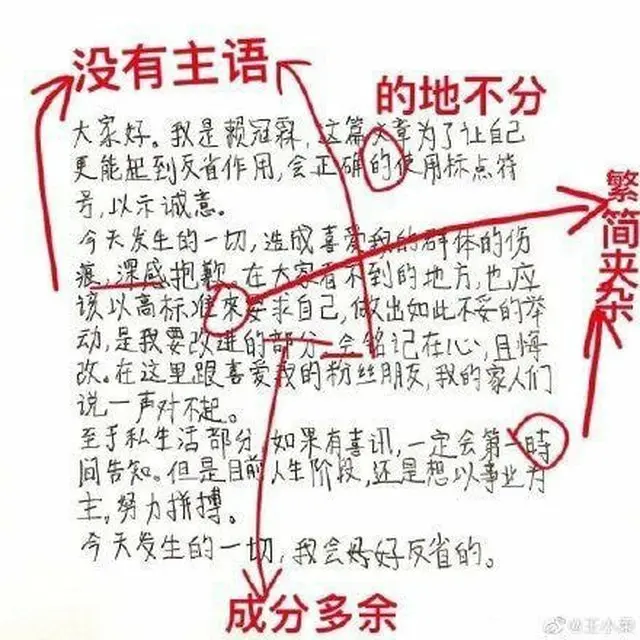 没有主语
的地不分
大家好。我是赖冠霖，这篇文章为了让自己
更能起到反省作用，会正确的使用标点符
号，以示诚意。
繁简夹杂
今天发生的一切，造成喜爱我的群体的伤
痕，深感抱歉。在大家看不到的地方，也应
该以高标准來要求自己，做出如此不妥的举
动，是我要改进的部分，会铭记在心，且悔
改。在这里跟喜爱我的粉丝朋友，我的家人们
说一声对不起。
至于私生活部分，如果有喜讯，一定会第一時
间告知。但是目前人生阶段，还是想以事业为
主，努力拼搏。
今天发生的一切，我会好好反省的。
成分多余